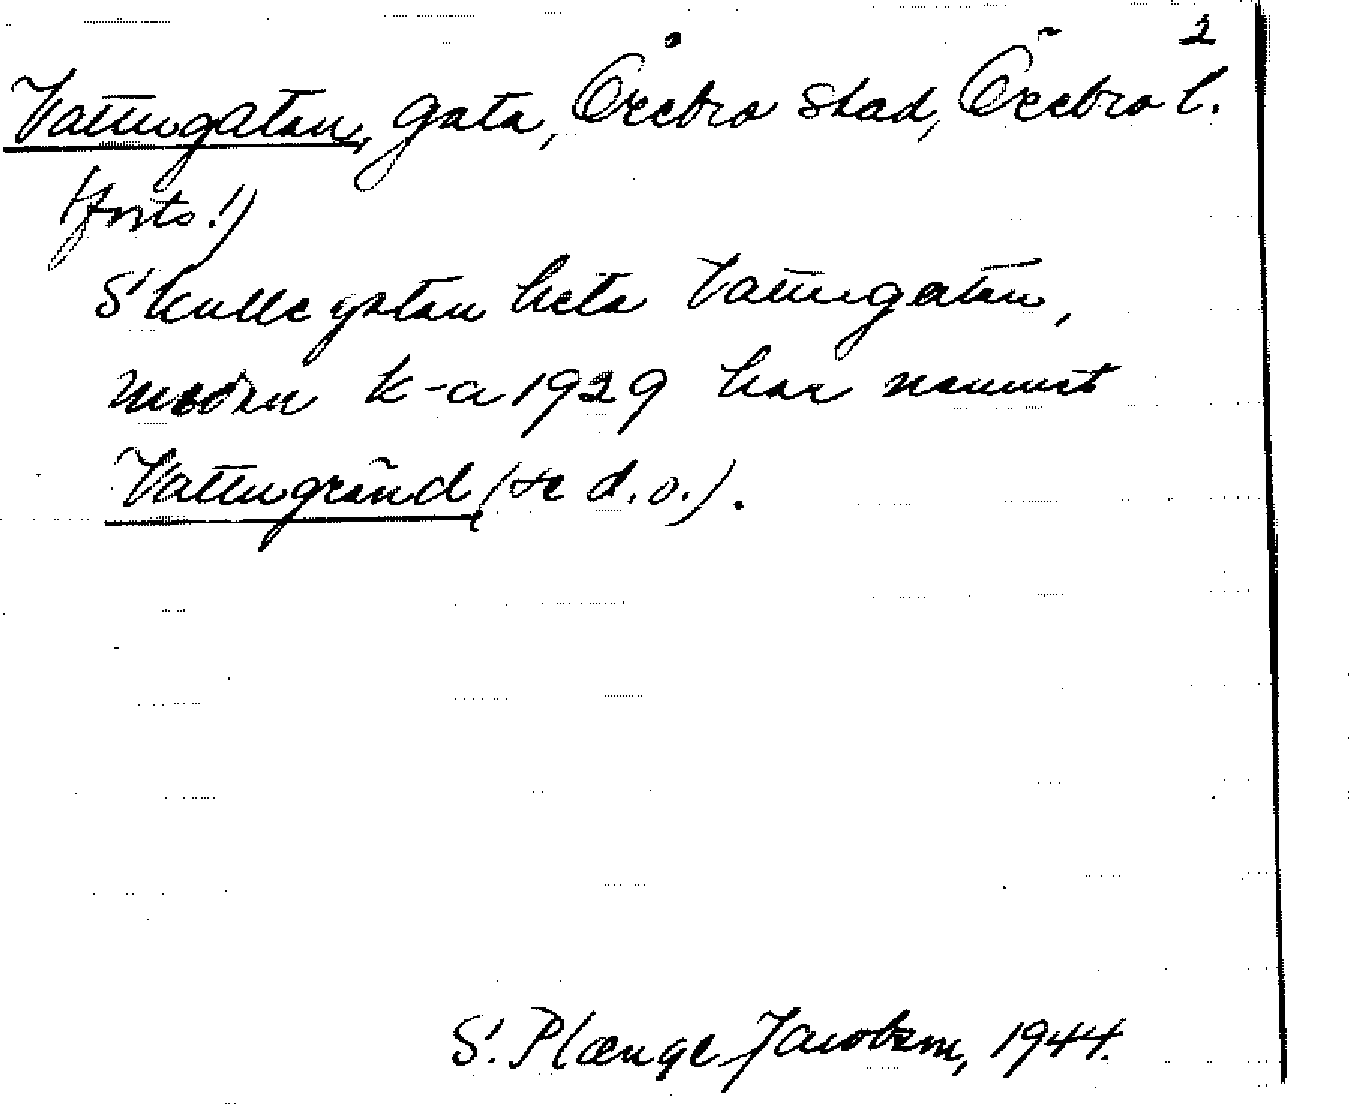 2
Vattugatan, gata, Örebro stad, Örebro l.
(forts.)
Skulle gatan heta Vattugatan,
medan k-a 1929 har namnet
Vattugränd (se d.o.).
S. Plænge Jacobson, 1944.